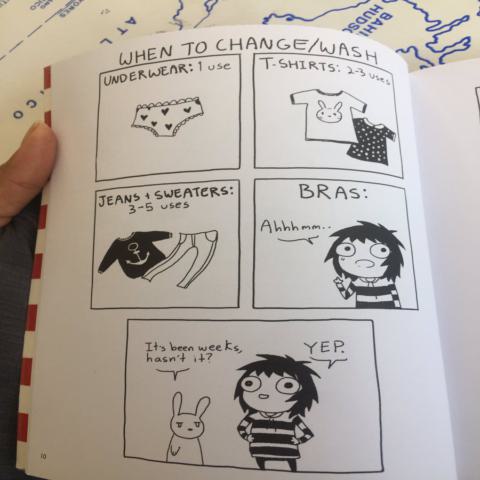 WHEN TO CHANGE/WASH
UNDERWEAR: 1 use
T-SHIRTS: 2-3 uses
JEANS + SWEATERS:
3-5 uses
BRAS:
Ahhhmm..
It's been weeks,
hasn't it?
YEP.
10
ATL
BAHI
HUDSO
ICO